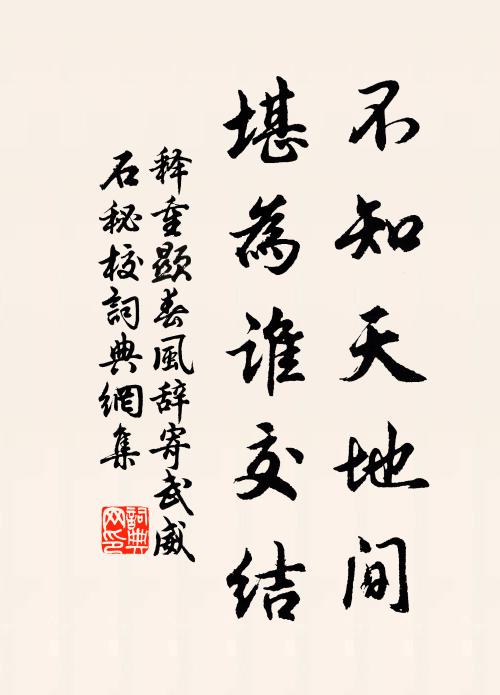 不知天地間
堪為谁交结
释重顯春風辞寄武威
石秘校詞典網集
詞典网印